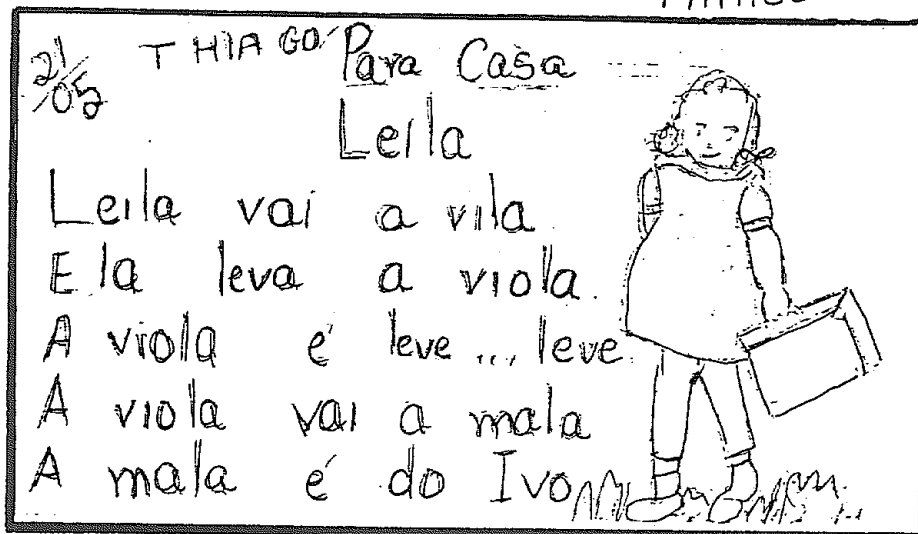 21/05 THIAGO Para Casa
Leila
Leila vai a vila
Ela leva a viola.
A viola é leve... leve.
A viola vai a mala
A mala é do Ivo